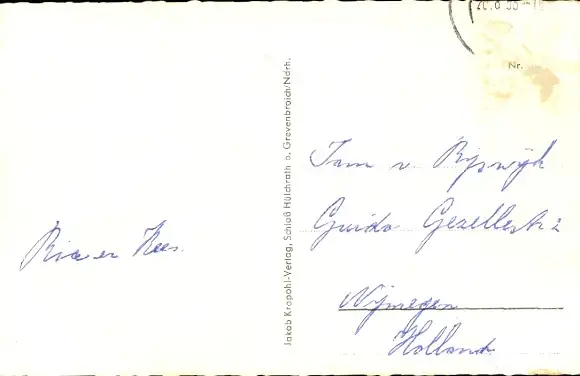 Ria en Kees.
Jakob Krapohl-Verlag, Schloß Hülchrath o. Grevenbroich/Ndrh.
Nr.
Fam v. Rijswijk
Guido Gezellestr 2
Nijmegen
Holland